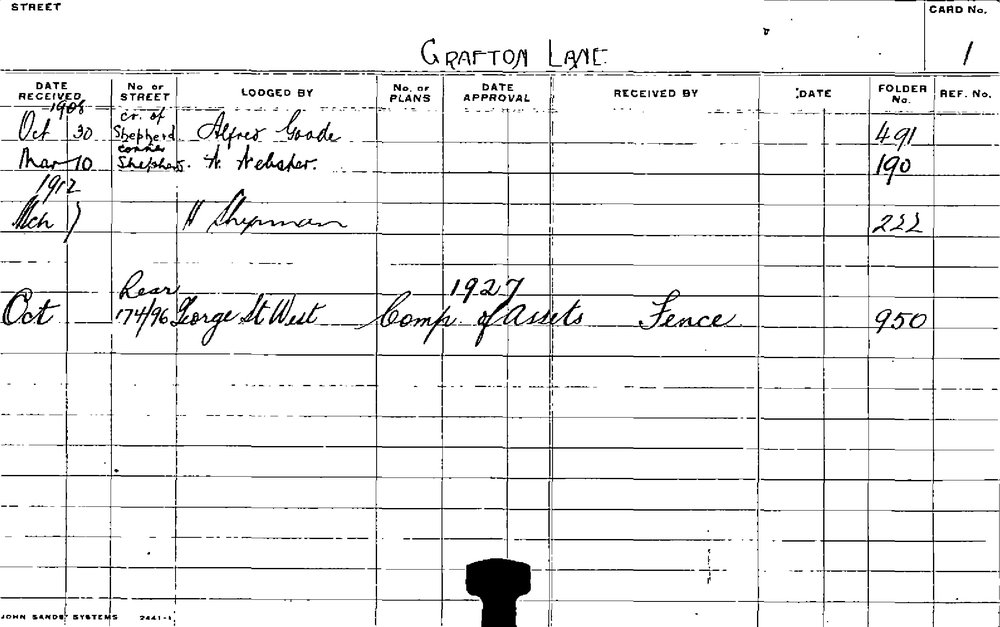 STREET
CARD No.
GRAFTON LANE
1
DATE RECEIVED No OF STREET LODGED BY No. OF PLANS DATE APPROVAL RECEIVED BY DATE FOLDER No. REF. No.
1908 cr. of
Oct 30 Shepherd Alfred Goode 491
corner
Mar 10 Shepherd. A. Webster. 190
1912
Mch 7 H Shipman 222
Rear 1927
Oct 174/96 George St West Comp. of Assets Fence 950
JOHN SANDS' SYSTEMS 2441-1